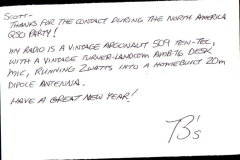 SCOTT-
THANKS FOR THE CONTACT DURING THE NORTH AMERICA
QSO PARTY!
MY RADIO IS A VINTAGE ARGONAUT 509 TEN-TEC,
WITH A VINTAGE TURNER-LANDCOM AMB-76 DESK
MIC, RUNNING 2 WATTS INTO A HOMEBUILT 20M
DIPOLE ANTENNA.
HAVE A GREAT NEW YEAR!
73's